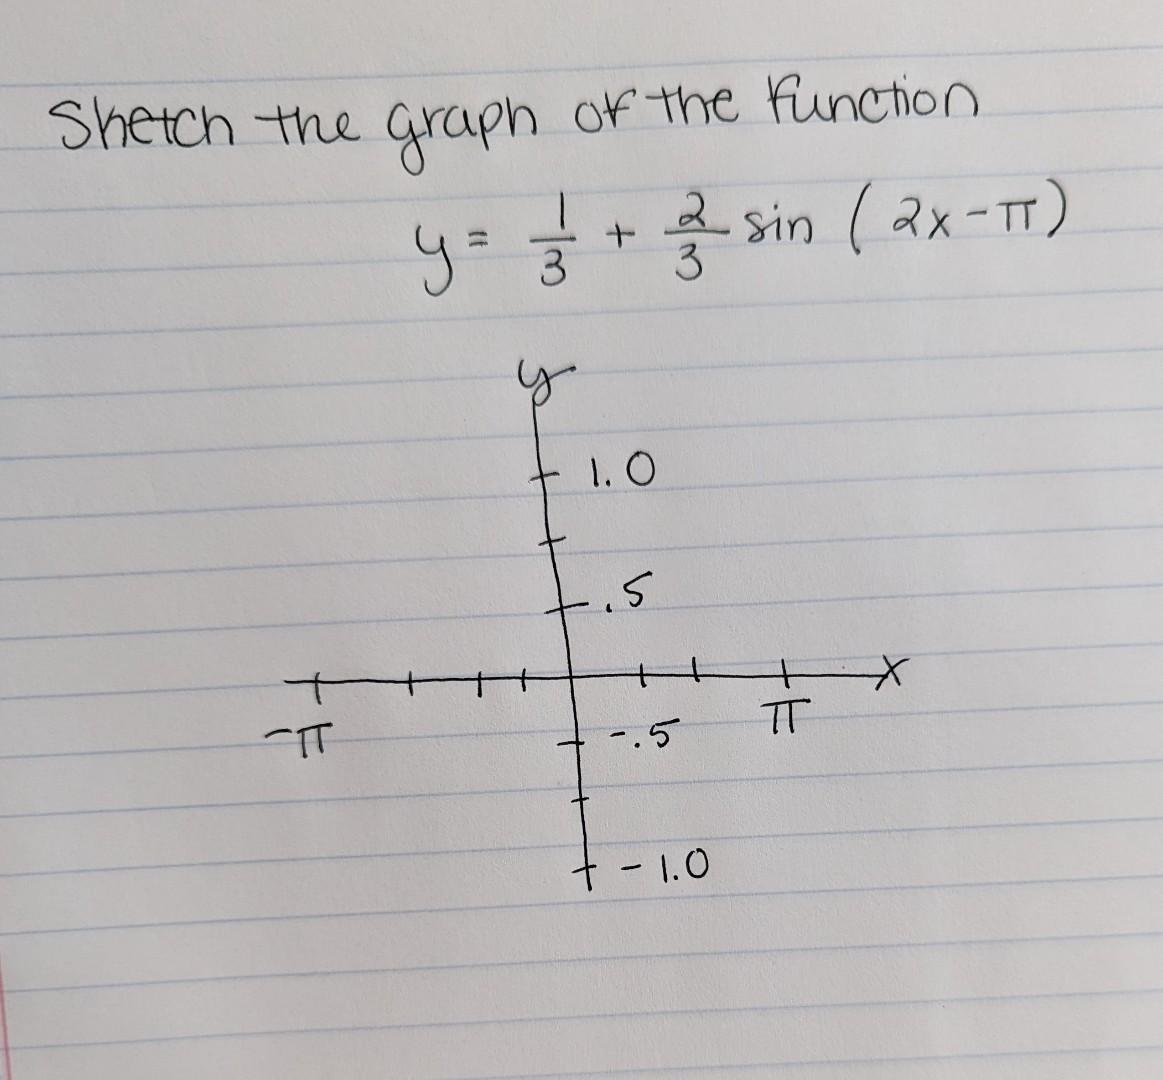 Sketch the graph of the function
y = 1/3 + 2/3 sin (2x - π)
y
1.0
.5
x
-π
-.5
π
-1.0